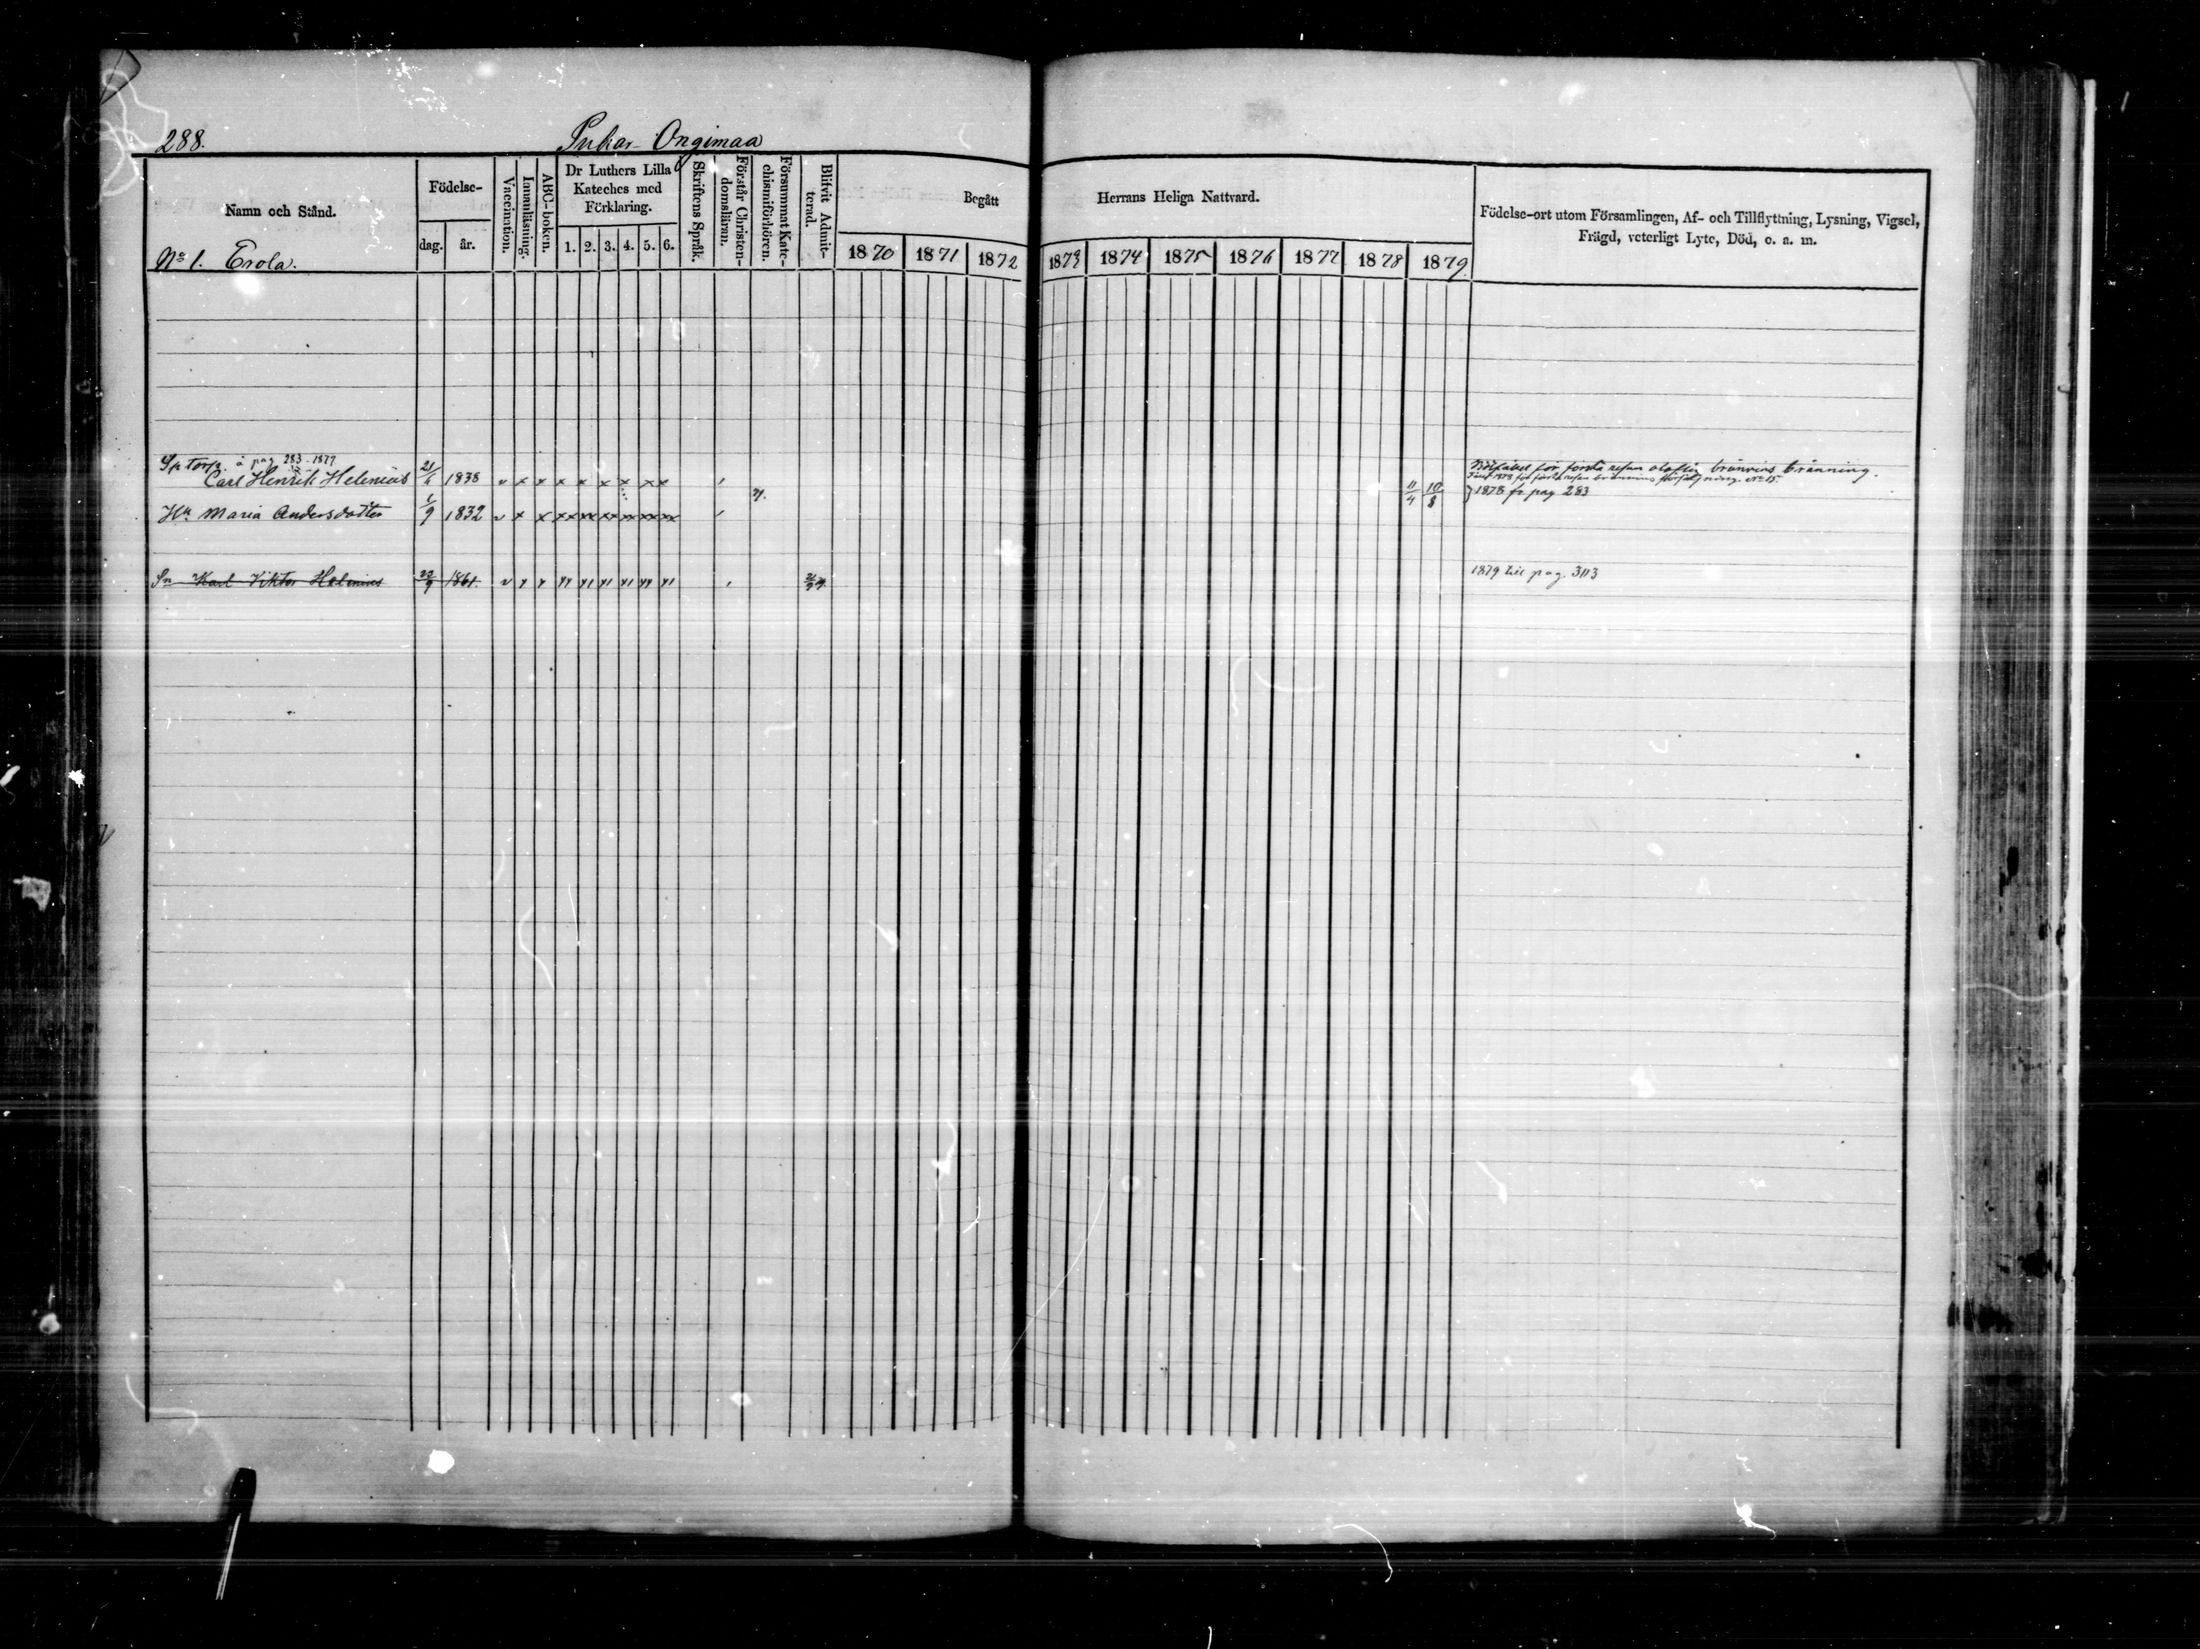 288. Pukar-Ongimaa
Namn och Stånd.
No 1. Erola.
Födelse-
dag. år.
Vaccination.
Innanläsning.
ABC-boken.
Dr Luthers Lilla
Kateches med
Förklaring.
1. 2. 3. 4. 5. 6.
Skriftens Språk.
Förstår Christen-
domsläran.
Försummat Kate-
chismiförhören.
Blifvit Admit-
terad.
Begått Herrans Heliga Nattvard.
1870 1871 1872 1873 1874 1875 1876 1877 1878 1879
Födelse-ort utom Församlingen, Af- och Tillflyttning, Lysning, Vigsel,
Frägd, veterligt Lyte, Död, o. a. m.
å pag 283-1877
Carl Henrik Helenius 1838 v x x x x x x x x
för första resan olaflig bränvins bränning.
1878 för första resan bränvins försäljning. No 15
11/4 10/8 } 1878 fr. pag 283
Hu Maria Andersdotter 1/9 1832 v x x xx xx xx xx xx xx
Sn Karl Viktor Helenius 1861. v x x
1879 till pag. 3113